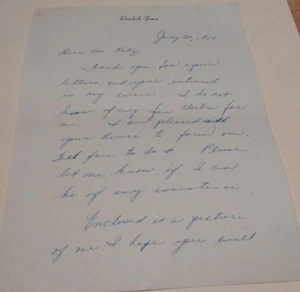 July 20,
Dear Mr. Katz,
Thank you for your
letters and your interest
in my career. I do not
know of any fan clubs for
me. I am pleased with
your desire to form one.
Feel free to do so. Please
let me know if I can
be of any assistance.
Enclosed is a picture
of me I hope you will